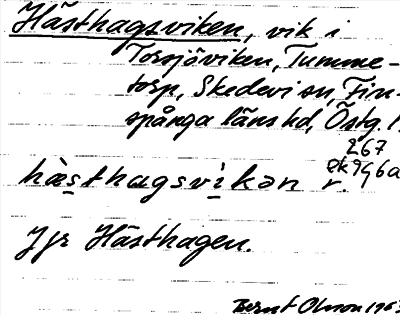 Hästhagsviken, vik i
Torsjöviken, Tumme-
torp, Skedevi sn, Fin-
spånga läns hd, Östg. l.
267
ek 9G6a
hàsthagsvìkən r.
Jfr Hästhagen.
Bernt Olsson 1963